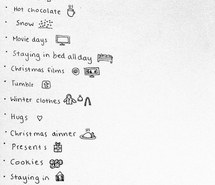 Hot chocolate
Snow
Movie days
Staying in bed all day
Christmas films
Tumblr
Winter clothes
Hugs
Christmas dinner
Presents
Cookies
Staying in